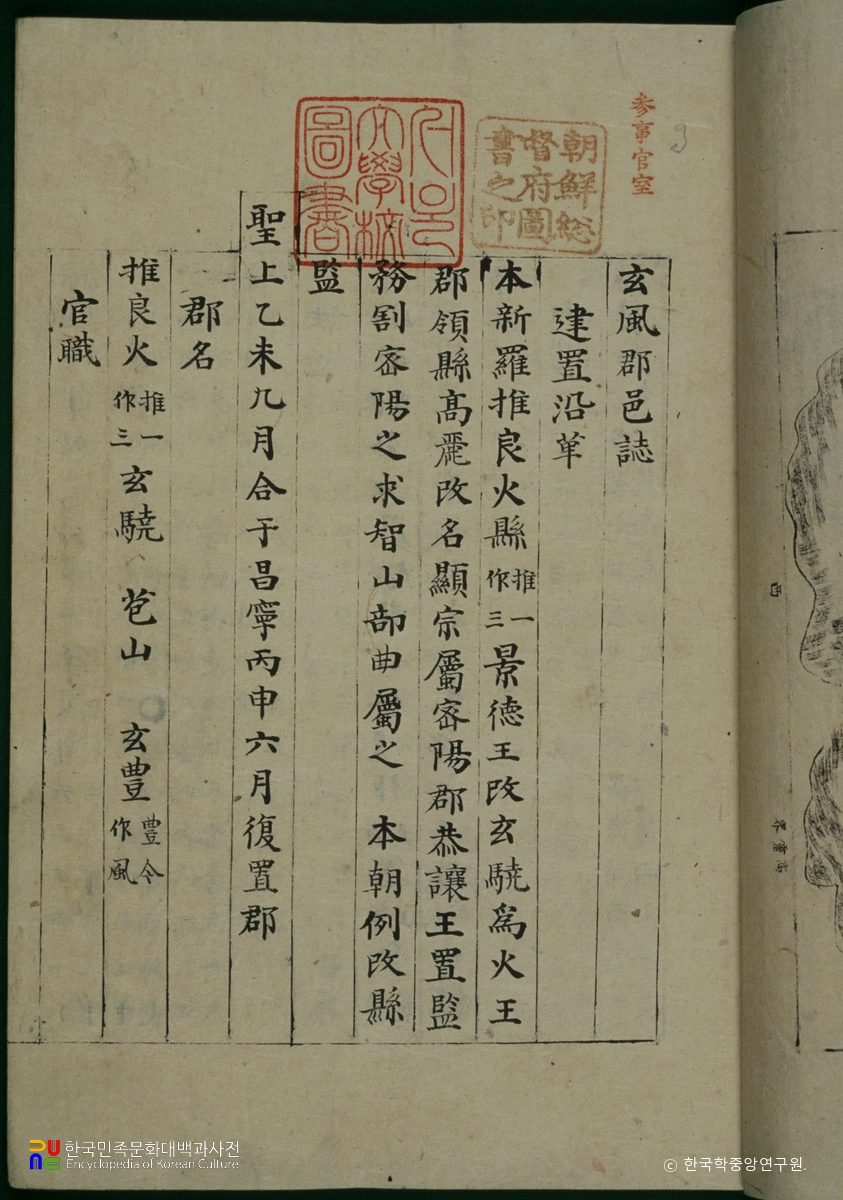 玄風郡邑誌
建置沿革
本新羅推良火縣推一作三景德王改玄驍爲火王
郡領縣高麗改名顯宗屬密陽郡恭讓王置監
務割密陽之求智山部曲屬之 本朝例改縣
監
聖上乙未九月合于昌寧丙申六月復置郡
郡名
推良火推一作三 玄驍 苞山 玄豊豊今作風
官職
参事官室
3
朝鮮総督府圖書之印
文學校
圖書
한국민족문화대백과사전
Encyclopedia of Korean Culture
© 한국학중앙연구원.